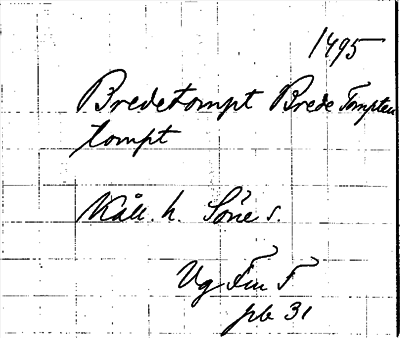 1495
Bredetompt Brede Tompten
tompt
Kåll. h. Söne s.
Vg Fm F
pb 31